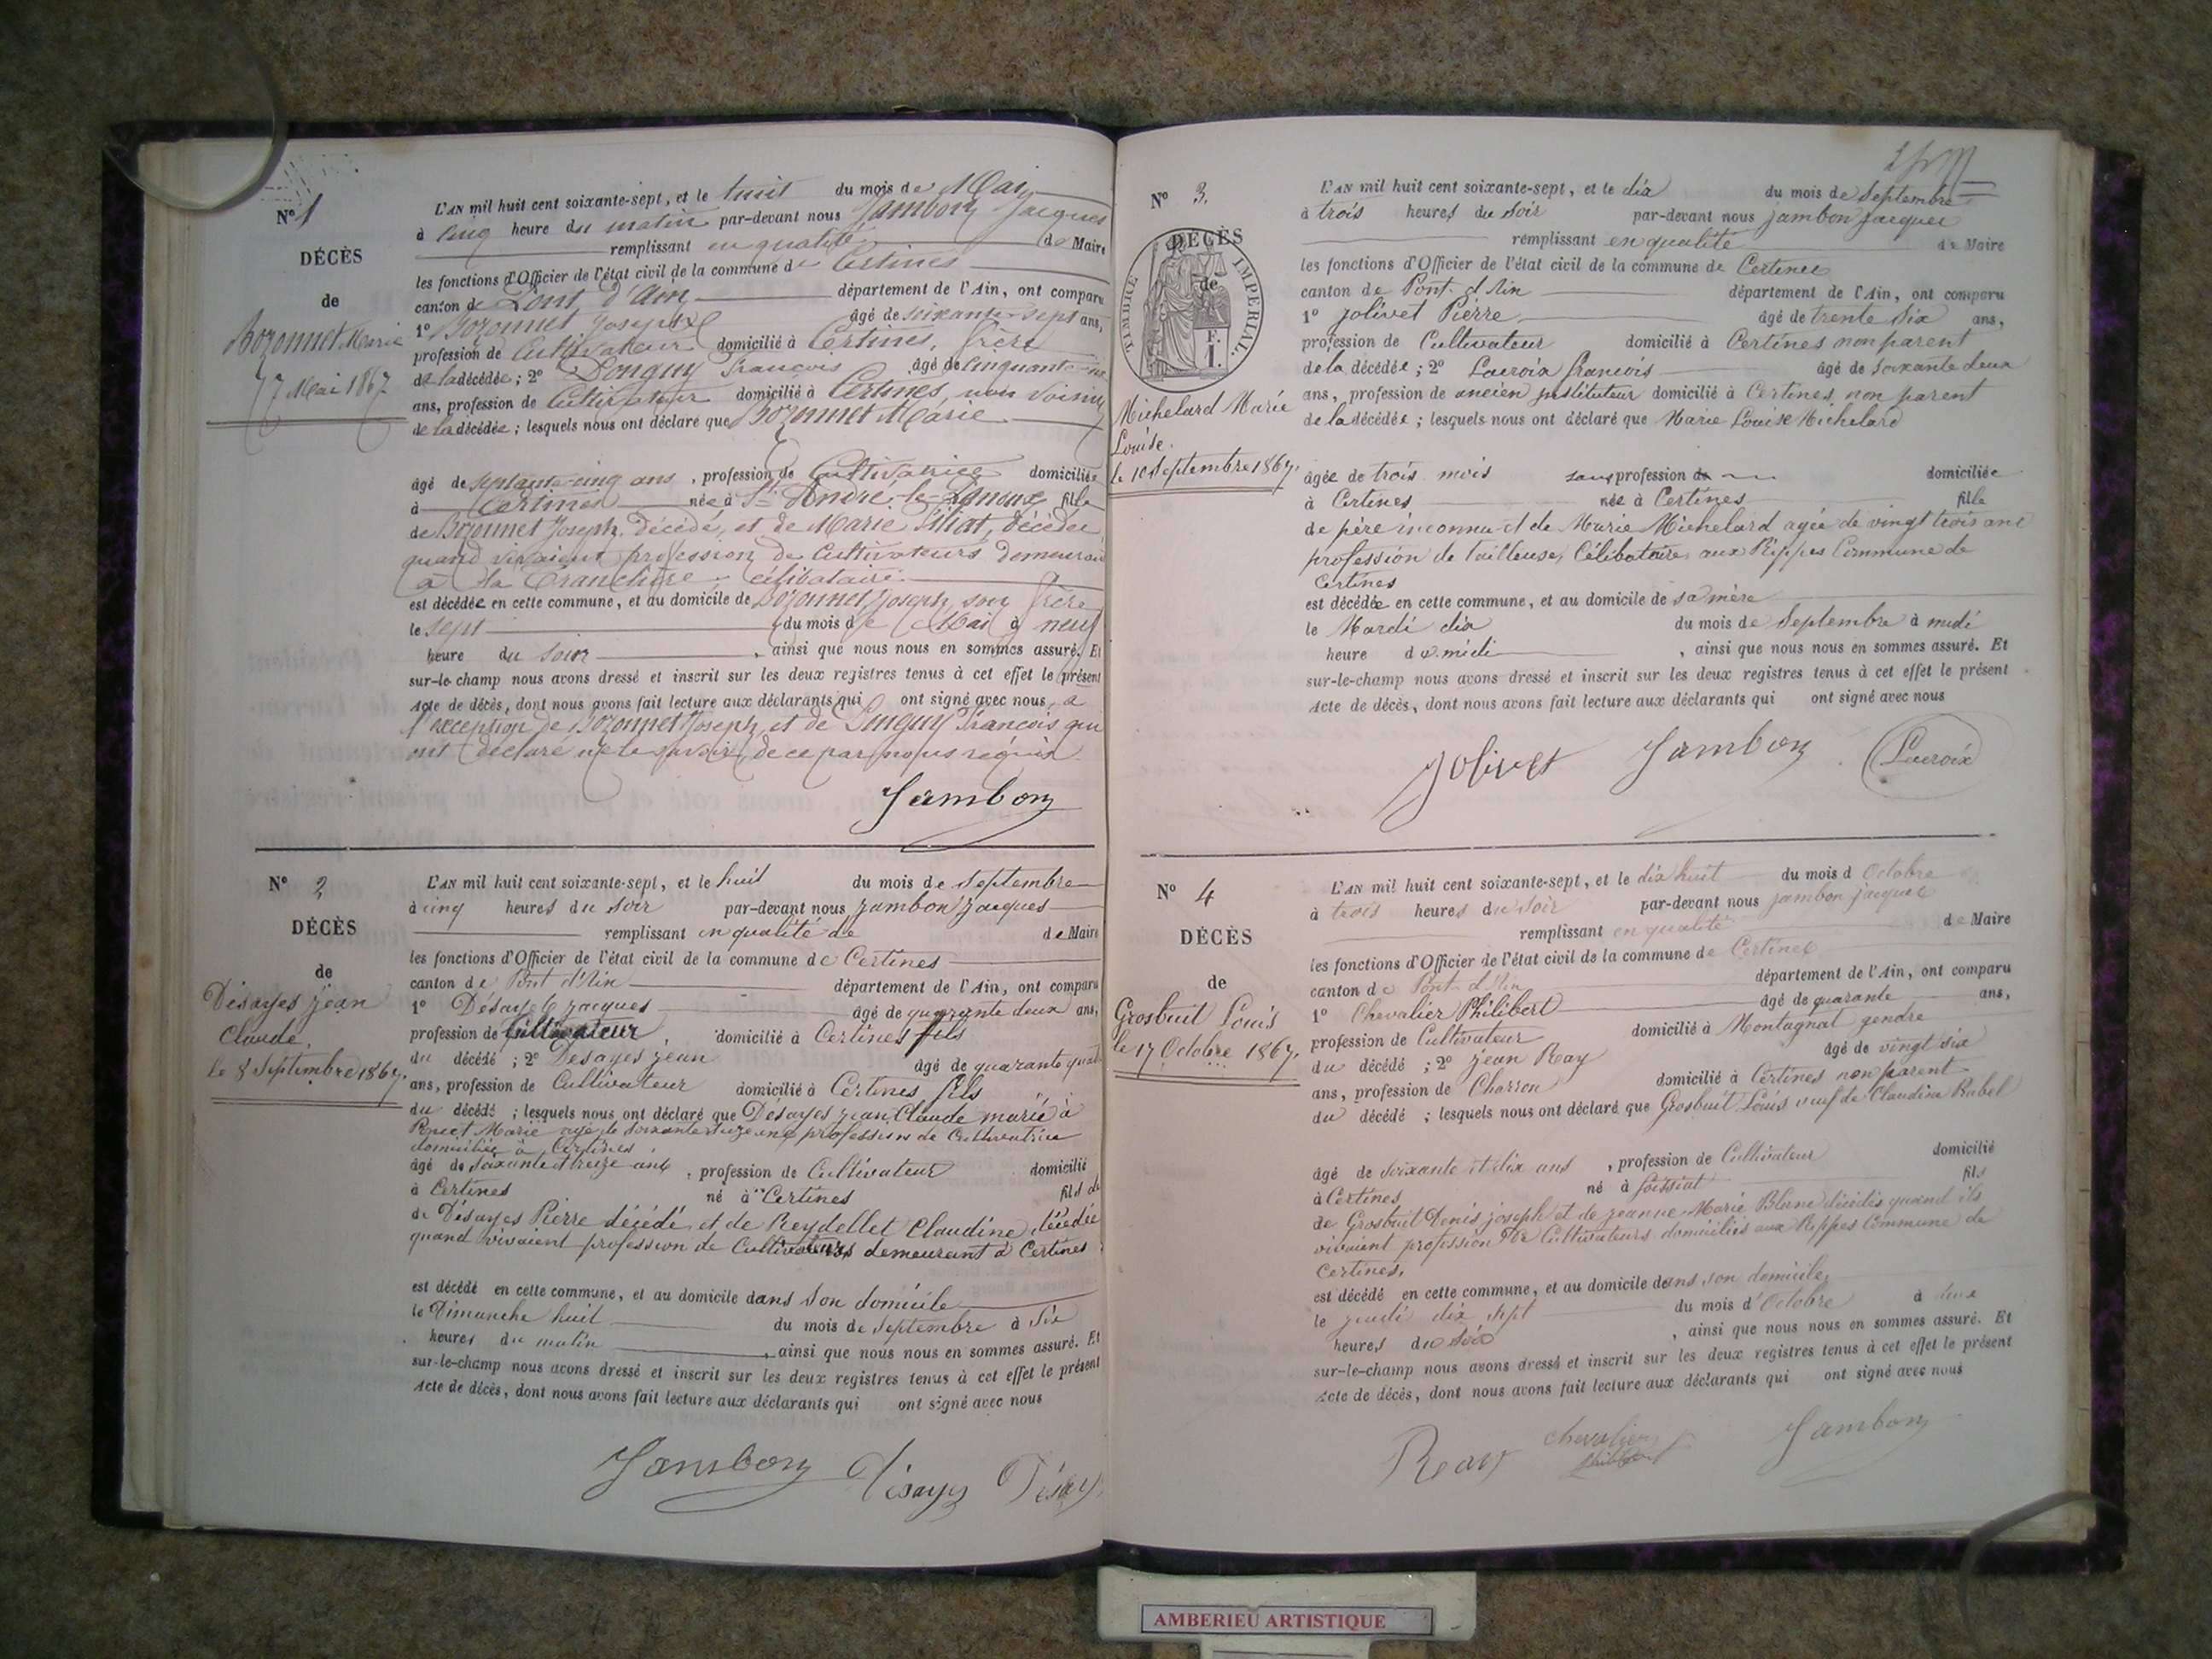 N° 1
DÉCÈS
de
Bozonnet Marie
7 Mai 1867
L'AN mil huit cent soixante-sept, et le huit du mois de Mai
à cinq heure du matin par-devant nous Jambon Jacques
remplissant en qualité de Maire
les fonctions d'Officier de l'état civil de la commune de Certines
canton de Pont d'Ain département de l'Ain, ont comparu
1° Bozonnet Joseph âgé de soixante-sept ans,
profession de Cultivateur domicilié à Certines, frère
de la décédée ; 2° François âgé de cinquante
ans, profession de Cultivateur domicilié à Certines, non voisin
de la décédée ; lesquels nous ont déclaré que Bozonnet Marie
âgé de septante-cinq ans, profession de Cultivatrice domiciliée
à Certines née à St André le fille
de Bozonnet Joseph, décédé, et de Marie décédée
quand vivaient profession de Cultivateurs demeurant
à la Tranclière célibataire
est décédée en cette commune, et au domicile de Bozonnet Joseph son frère
le sept du mois de Mai à neuf
heure du soir, ainsi que nous nous en sommes assuré. Et
sur-le-champ nous avons dressé et inscrit sur les deux registres tenus à cet effet le présent
Acte de décès, dont nous avons fait lecture aux déclarants qui ont signé avec nous, à
l'exception de Bozonnet Joseph et de François qui
ont déclaré ne le savoir, de ce par nous requis
Jambon
N° 2
DÉCÈS
de
Désayes jean
Claude.
le 8 Septembre 1867.
L'AN mil huit cent soixante-sept, et le huit du mois de Septembre
à cinq heures du soir par-devant nous Jambon Jacques
remplissant en qualité de de Maire
les fonctions d'Officier de l'état civil de la commune de Certines
canton de Pont d'Ain département de l'Ain, ont comparu
1° Désayes Jacques âgé de quarante deux ans,
profession de Cultivateur, domicilié à Certines fils
du décédé ; 2° Désayes jean âgé de quarante quatre
ans, profession de Cultivateur domicilié à Certines fils
du décédé ; lesquels nous ont déclaré que Désayes jean Claude marié à
Marie agée de soixante ans profession de Cultivatrice
domiciliée à Certines
âgé de soixante et treize ans, profession de Cultivateur domicilié
à Certines né à Certines fils de
de Désayes Pierre décédé et de Reydellet Claudine décédée
quand vivaient profession de Cultivateurs demeurant à Certines
est décédé en cette commune, et au domicile dans son domicile
le Dimanche huit du mois de Septembre à six
heures du matin, ainsi que nous nous en sommes assuré. Et
sur-le-champ nous avons dressé et inscrit sur les deux registres tenus à cet effet le présent
Acte de décès, dont nous avons fait lecture aux déclarants qui ont signé avec nous
Jambon Désayes Désayes
N° 3.
DÉCÈS
de
TIMBRE IMPERIAL.
F.
1.
Michelard Marie
Louise.
le 10 Septembre 1867.
L'AN mil huit cent soixante-sept, et le dix du mois de Septembre
à trois heures du soir par-devant nous jambon Jacques
remplissant en qualité de Maire
les fonctions d'Officier de l'état civil de la commune de Certines
canton de Pont d'Ain département de l'Ain, ont comparu
1° jolivet Pierre âgé de trente six ans,
profession de Cultivateur domicilié à Certines non parent
de la décédée ; 2° Lacroix francois âgé de soixante deux
ans, profession de ancien jnstituteur domicilié à Certines, non parent
de la décédée ; lesquels nous ont déclaré que Marie Louise Michelard
âgée de trois mois sans profession de domiciliée
à Certines née à Certines fille
de père inconnu et de Marie Michelard agée de vingt trois ans
profession de tailleuse, Célibataire, aux Rippes Commune de
Certines
est décédée en cette commune, et au domicile de sa mère
le Mardi dix du mois de Septembre à midi
heure de midi, ainsi que nous nous en sommes assuré. Et
sur-le-champ nous avons dressé et inscrit sur les deux registres tenus à cet effet le présent
Acte de décès, dont nous avons fait lecture aux déclarants qui ont signé avec nous
Jolivet Jambon Lacroix
N° 4
DÉCÈS
de
Grosbuit Louis
le 17 Octobre 1867.
L'AN mil huit cent soixante-sept, et le dix huit du mois d Octobre
à trois heures du soir par-devant nous jambon jacques
remplissant en qualité de Maire
les fonctions d'Officier de l'état civil de la commune de Certines
canton de Pont d'Ain département de l'Ain, ont comparu
1° Chevalier Philibert âgé de quarante ans,
profession de Cultivateur domicilié à Montagnat gendre
du décédé ; 2° jean Ray âgé de vingt six
ans, profession de Charron domicilié à Certines non parent
du décédé ; lesquels nous ont déclaré que Grosbuit Louis veuf de Claudine Rabel
âgé de soixante et dix ans, profession de Cultivateur domicilié
à Certines né à fils
de Grosbuit Denis joseph et de jeanne Marie décédés quand ils
vivaient profession de Cultivateurs domiciliés aux Rippes Commune de
Certines.
est décédé en cette commune, et au domicile dans son domicile,
le jeudi dix sept du mois d'Octobre à
heures du soir, ainsi que nous nous en sommes assuré. Et
sur-le-champ nous avons dressé et inscrit sur les deux registres tenus à cet effet le présent
Acte de décès, dont nous avons fait lecture aux déclarants qui ont signé avec nous
Ray Chevalier Philibert Jambon
AMBERIEU ARTISTIQUE